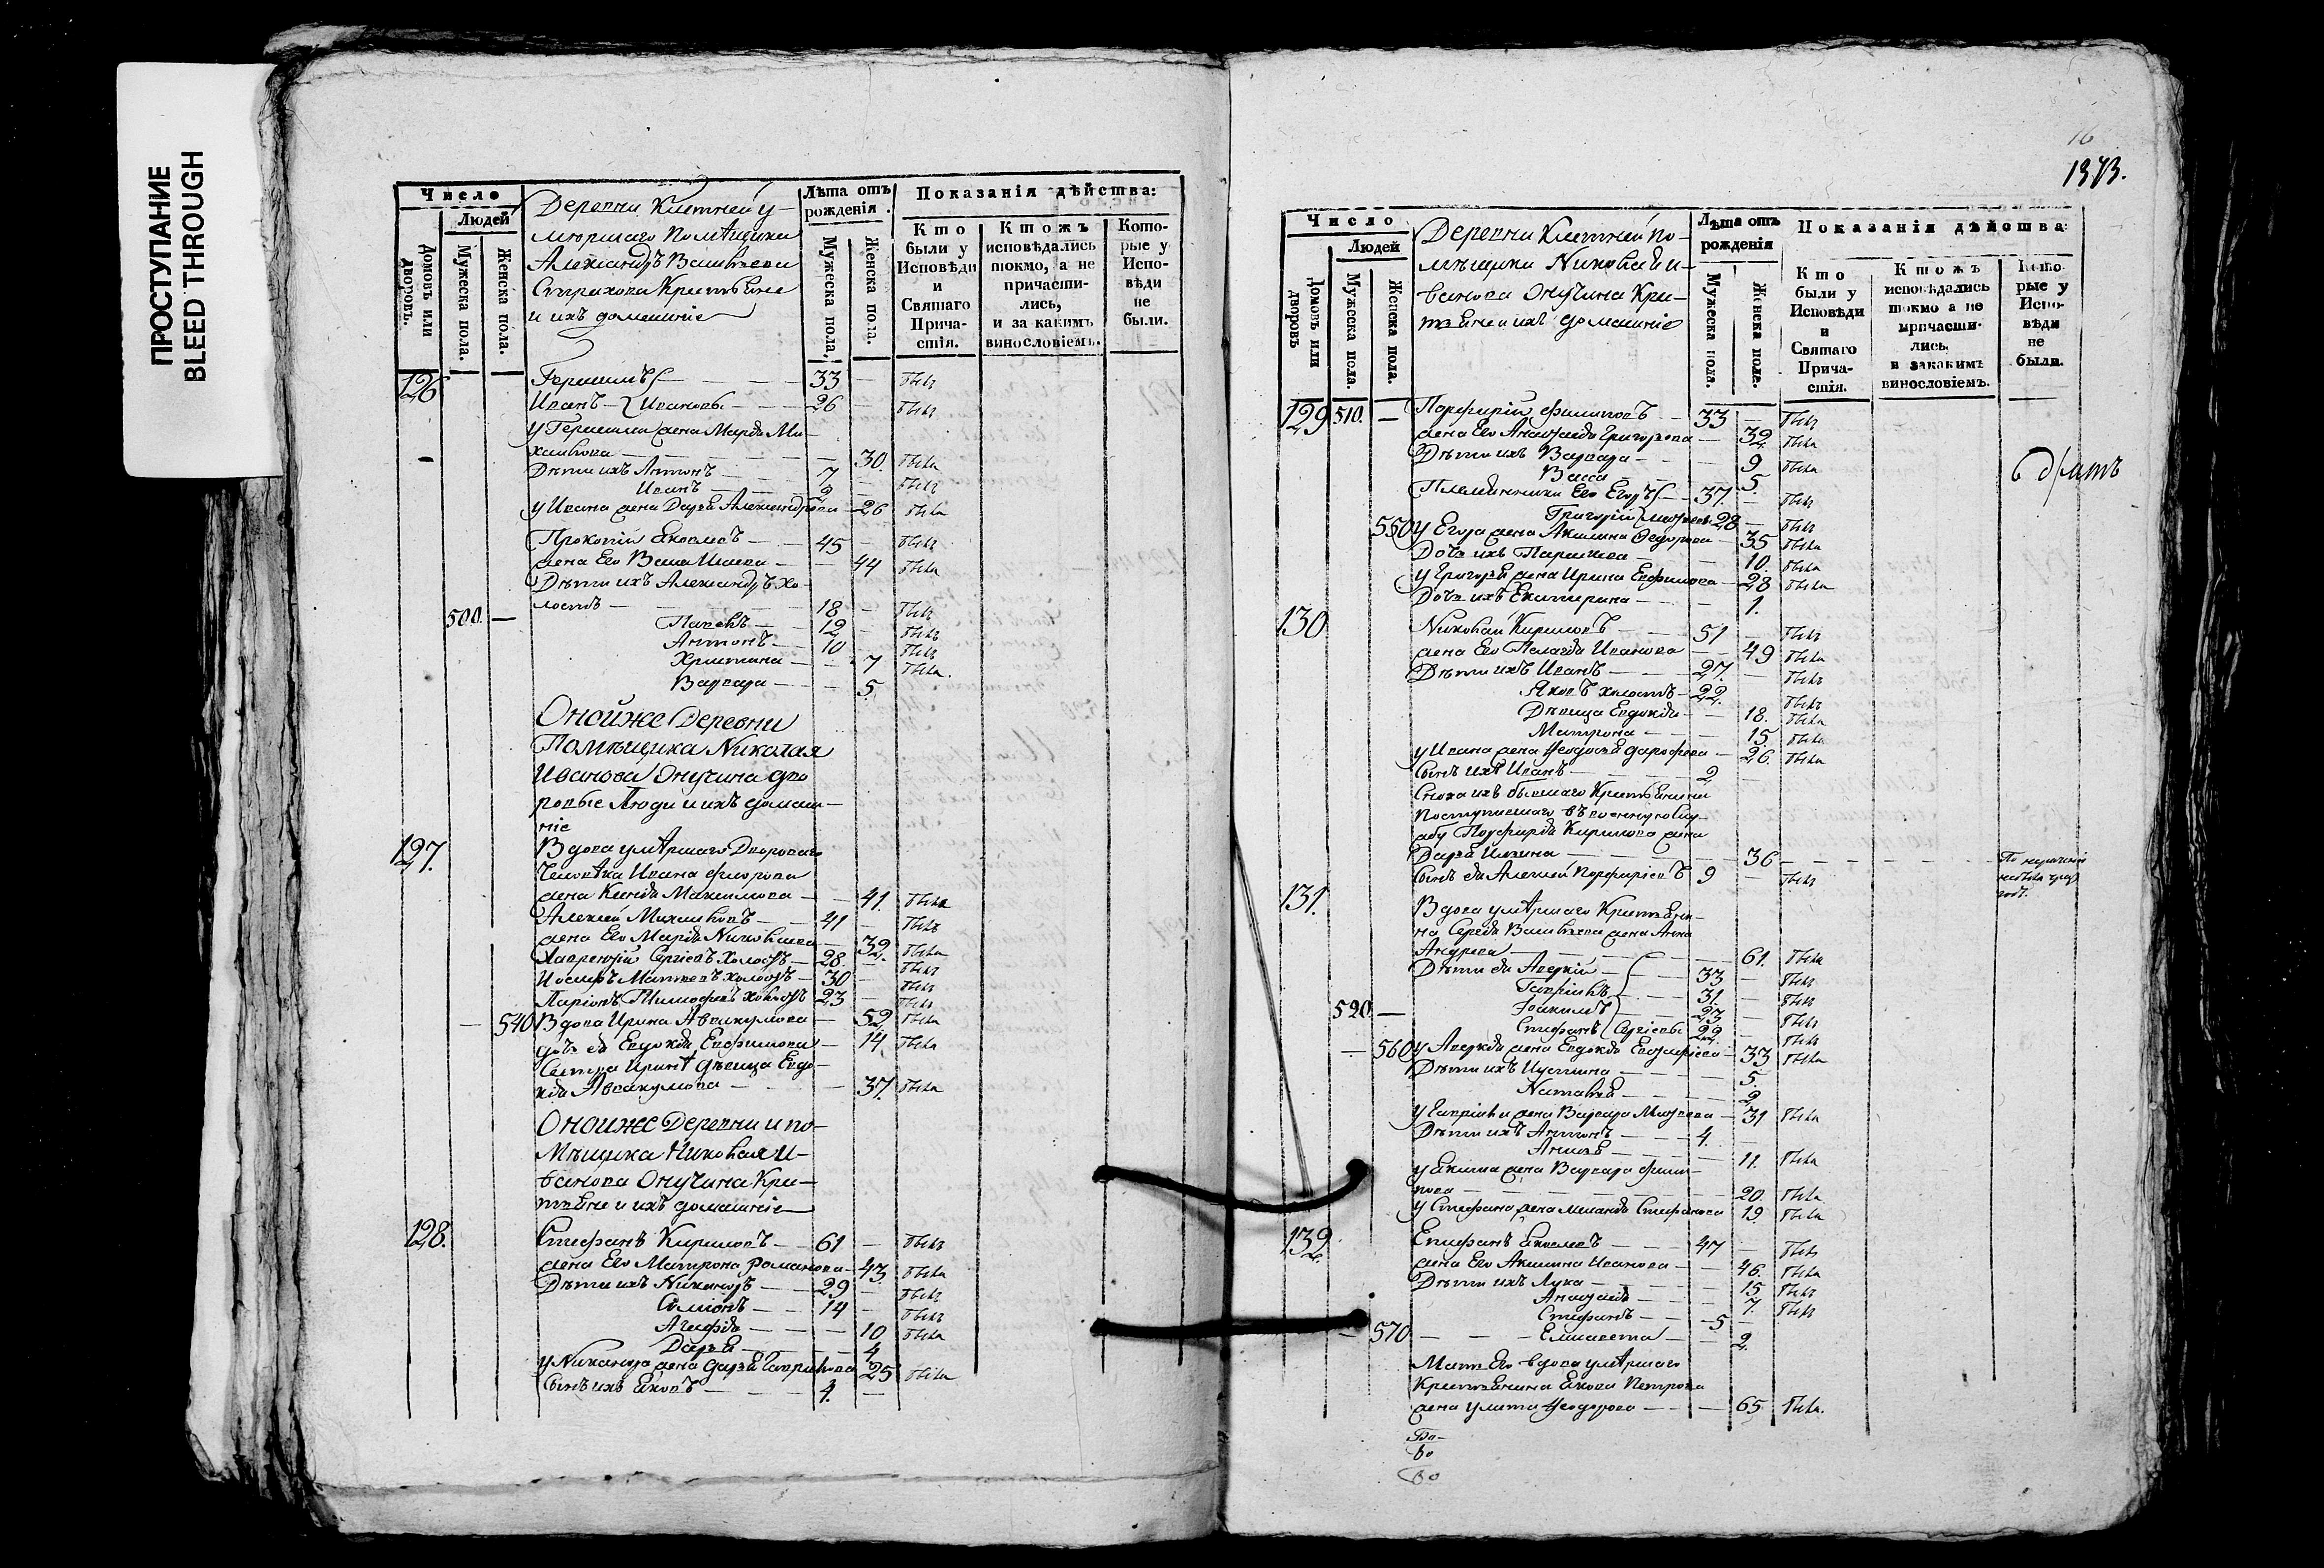 ПРОСТУПАНИЕ
BLEED THROUGH
Число
Людей
Домовъ или дворовъ.
Мужеска пола.
Женска пола.
Деревни Клетней у-
мершаго Помѣщика
Александръ Васильева
Страхова Крестьяне
и ихъ домашніе
Лѣта отъ рожденія.
Мужеска пола,
Женска пола.
Показанія дѣйства:
Кто были у Исповѣди и Святаго Причастія.
Ктожъ исповѣдались токмо, а не причастились, и за какимъ винословіемъ.
Которые у Исповѣди не были.
126 Герасимъ 33 — былъ
Иванъ — Ивановы 26 — былъ
у Герасима жена Марѳа Ми-
хайлова — 30. была
Дѣти ихъ Антонъ 7 — былъ
Иванъ 2 —
у Ивана жена Дарья Александрова — 26 была
Прокопій Яковлевъ 45 — былъ
жена Его Васса Исаева — 44 была
Дѣти ихъ Александръ Хо-
500. — лостъ 18 — былъ
Павелъ 12 — былъ
Антонъ 10 — былъ
Христина — 7 была.
Варвара — 5.
Онойже Деревни
Помѣщика Николая
Иванова Онучина дво
ровые Люди и ихъ домаш-
ніе
127. Вдова умѣршаго Двороваго
Человѣка Ивана
жена Максимова — 41. была
Алексѣй Михайловъ 41 — былъ
жена Его Марія Николаева — 32. была
Лаврентій Сергіевъ Холостъ 28. — былъ
Иосифъ Матвеевъ холостъ 30 — былъ
Ларіонъ Тимофеевъ холостъ 23 — былъ
— 540 Вдова Ирина Аввакумова — 52. была
дочь ея Евдокія Евфимова — 14 была
Сестра Иринѣ дѣвица Евдо-
кія Аввакумова — 37. была
Онойже Деревни и по-
мѣщика Николая И-
ванова Онучина Кре-
стьяне и ихъ домашніе
128. Стефанъ Кириловъ 61 — былъ
жена Его Матрона Романова — 43 была
Дѣти ихъ Никаноръ 29 — былъ
Симіонъ 14 — былъ
Агафія — 10 была
Дарья — 4
у Никанора жена Дарья Гаврилова 25 была
Сынъ ихъ Яковъ 4. —
16
1373.
Число
Людей
Домовъ или дворовъ
Мужеска пола.
Женска пола.
Деревни Клетней по-
мѣщика Николая И-
ванова Онучина Кре-
стьяне и ихъ домашніе
Лѣта отъ рожденія
Мужеска пола.
Женска пола.
Показанія дѣйства:
Кто были у Исповѣди и Святаго Причастія.
Ктожъ исповѣдались токмо а не причастились, и закакимъ винословіемъ.
Которые у Исповѣди не были.
129 510. — Порфирій Филиповъ 33 — былъ
жена Его Анастасія Григорова — 32 была
Дѣти ихъ Варвара — 9 была
Васса — 5.
Племянники Его Егоръ 37. — былъ
Григорій 28 — былъ
550 у Егора жена Акилина Федорова — 35 была
Дочь ихъ Параскева — 10. была
у Григорья жена Ирина Евфимова — 28 была
Дочь ихъ Екатерина — 1.
130 Николай Кириловъ 51 — былъ
жена Его Пелагѣя Иванова — 49 была
Дѣти ихъ Иванъ 27. — былъ
Яковъ холостъ 22. — былъ
Дѣвица Евдокія — 18. была
Матрона — 15 была
у Ивана жена Ѳеодосья Дорофеева — 26. была
Сынъ ихъ Иванъ 2 —
Сноха ихъ бывшаго Крестьянина
поступившаго въ военную слу-
жбу Порфирія Кирилова жена
Дарья — 36
Сынъ ея Алексѣй Порфиріевъ 9 — былъ
131. Вдова умѣршаго Крестьяни-
на Сергѣя Васильева жена Анна
Андреева — 61. была
Дѣти ея Аверкій 33 — былъ
Гавріилъ 31. — былъ
520 — Іоакимъ 23 — былъ
Стефанъ Сергіевы 22. — былъ
— 560 у Аверкія жена Евдокія — 33 была
Дѣти ихъ Иустина — 5.
Наталья — 2
у Гавріила жена Варвара — 31 была
Дѣти ихъ Антонъ 4. —
— 11. была
у Якима жена Варвара Фили-
пова — 20. была
у Стефана жена Меланія Стефанова 19. была
132. Епифанъ Яковлевъ 47 — былъ
жена Его Акилина Иванова — 46. была
Дѣти ихъ Лука — 15 былъ
— 7. былъ
Стефанъ 5 —
— 570 — Елисавета — 2
Мать Его вдова умѣршаго
Крестьянина Якова Петрова
жена Улита Ѳеодорова — 65 была.